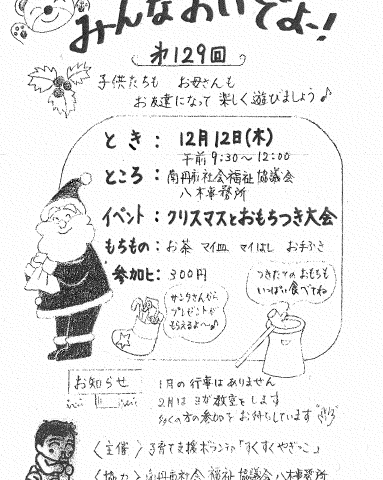 みんなおいでよ〜!
第129回
子供たちも お母さんも
お友達になって 楽しく遊びましょう♪
とき: 12月12日(木)
午前9:30〜12:00
ところ: 南丹市社会福祉協議会
八木事務所
イベント: クリスマスとおもちつき大会
もちもの: お茶 マイ皿 マイはし お手ふき
参加ヒ: 300円
サンタさんから
プレゼントが
もらえるよ〜♪
つきたてのおもちも
いっぱい食べてね
お知らせ
1月の行事はありません
2月はヨガ教室をします
多くの方の参加をお待ちしています
〈主催〉子育て支援ボランティア「すくすくやぎっこ」
〈協力〉南丹市社会福祉協議会八木事務所